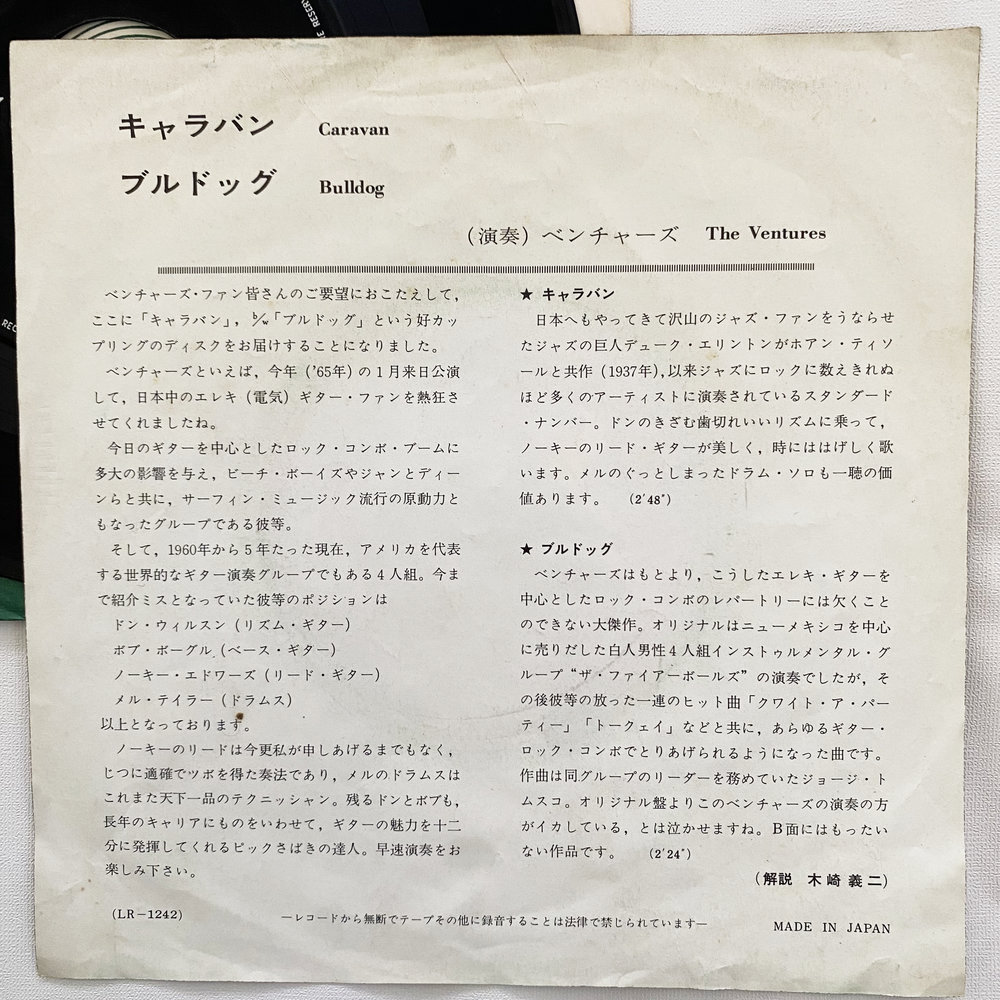 キャラバン Caravan
ブルドッグ Bulldog
(演奏) ベンチャーズ The Ventures
ベンチャーズ・ファン皆さんのご要望におこたえして,
ここに「キャラバン」, b/w「ブルドッグ」という好カッ
プリングのディスクをお届けすることになりました。
ベンチャーズといえば, 今年 ('65年) の1月来日公演
して, 日本中のエレキ (電気) ギター・ファンを熱狂さ
せてくれましたね。
今日のギターを中心としたロック・コンボ・ブームに
多大の影響を与え, ビーチ・ボーイズやジャンとディー
ンらと共に, サーフィン・ミュージック流行の原動力と
もなったグループである彼等。
そして, 1960年から5年たった現在, アメリカを代表
する世界的なギター演奏グループでもある4人組。今ま
で紹介ミスとなっていた彼等のポジションは
ドン・ウィルスン (リズム・ギター)
ボブ・ボーグル (ベース・ギター)
ノーキー・エドワーズ (リード・ギター)
メル・テイラー (ドラムス)
以上となっております。
ノーキーのリードは今更私が申しあげるまでもなく,
じつに適確でツボを得た奏法であり, メルのドラムスは
これまた天下一品のテクニッシャン。残るドンとボブも,
長年のキャリアにものをいわせて, ギターの魅力を十二
分に発揮してくれるピックさばきの達人。早速演奏をお
楽しみ下さい。
★ キャラバン
日本へもやってきて沢山のジャズ・ファンをうならせ
たジャズの巨人デューク・エリントンがホアン・ティソ
ールと共作 (1937年), 以来ジャズにロックに数えきれぬ
ほど多くのアーティストに演奏されているスタンダード
・ナンバー。ドンのきざむ歯切れいいリズムに乗って,
ノーキーのリード・ギターが美しく, 時にははげしく歌
います。メルのぐっとしまったドラム・ソロも一聴の価
値あります。 (2′48″)
★ ブルドッグ
ベンチャーズはもとより, こうしたエレキ・ギターを
中心としたロック・コンボのレパートリーには欠くこと
のできない大傑作。オリジナルはニューメキシコを中心
に売りだした白人男性4人組インストゥルメンタル・グ
ループ“ザ・ファイアーボールズ”の演奏でしたが, そ
の後彼等の放った一連のヒット曲「クワイト・ア・パー
ティー」「トークェイ」などと共に, あらゆるギター・
ロック・コンボでとりあげられるようになった曲です。
作曲は同グループのリーダーを務めていたジョージ・ト
ムスコ。オリジナル盤よりこのベンチャーズの演奏の方
がイカしている, とは泣かせますね。B面にはもったい
ない作品です。 (2′24″)
(解説 木崎義二)
(LR-1242)
―レコードから無断でテープその他に録音することは法律で禁じられています―
MADE IN JAPAN